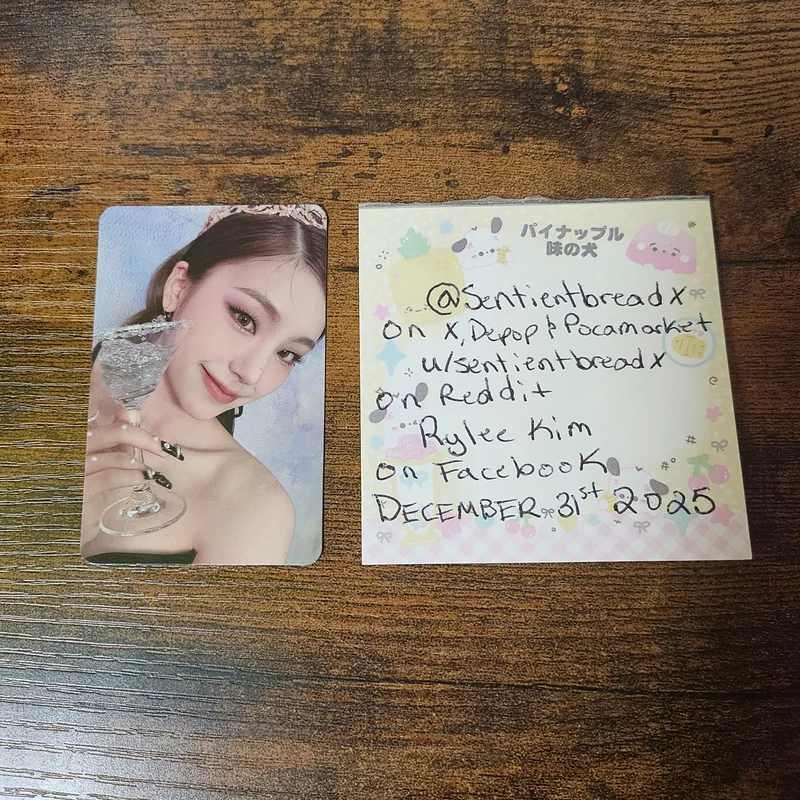 パイナップル
味の犬
@Sentientbreadx
on X, Depop & Pocamarket
u/sentientbreadx
on Reddit
Rylee Kim
on Facebook
DECEMBER 31st 2025